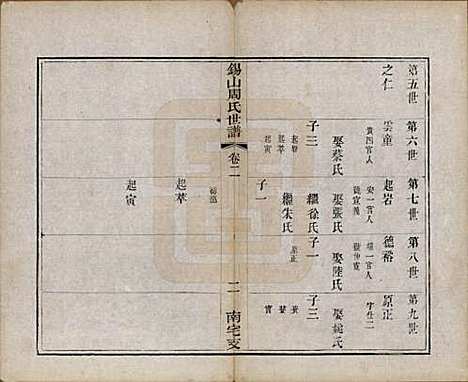 第五世
第六世
第七世
第八世
第九世
之仁
雲童
起岩
德裕
原正
黄四官人
安一官人
徙宜茂
福一官人
字仕二
娶蔡氏
娶張氏
娶陸氏
子三
繼徐氏
子一
子三
起岩
起莘
起寅
繼朱氏
原正
子一
錫山周氏世譜
卷二
二
南宅支
德裕
起莘
起寅